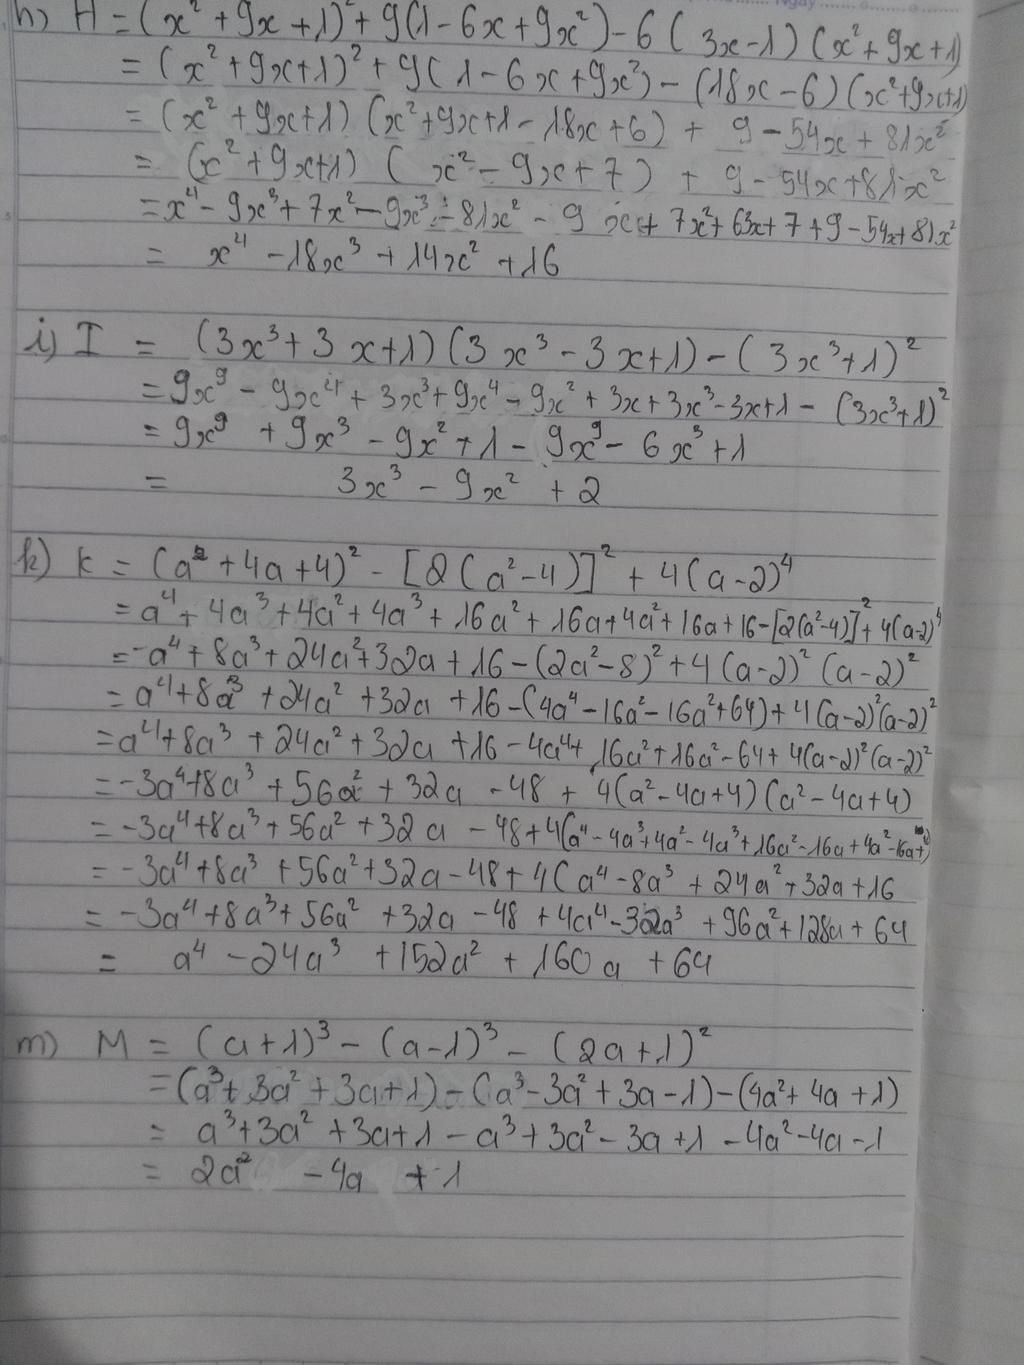 h) H = (x² + 9x + 1)² + 9(1 - 6x + 9x²) - 6(3x - 1)(x² + 9x + 1)
= (x² + 9x + 1)² + 9(1 - 6x + 9x²) - (18x - 6)(x² + 9x + 1)
= (x² + 9x + 1)(x² + 9x + 1 - 18x + 6) + 9 - 54x + 81x²
= (x² + 9x + 1)(x² - 9x + 7) + 9 - 54x + 81x²
= x⁴ - 9x³ + 7x² - 9x³ - 81x² - 9x + 7x² + 63x + 7 + 9 - 54x + 81x²
= x⁴ - 18x³ + 14x² + 16
i) I = (3x³ + 3x + 1)(3x³ - 3x + 1) - (3x³ + 1)²
= 9x⁹ - 9x⁴ + 3x³ + 9x⁴ - 9x² + 3x + 3x³ - 3x + 1 - (3x³ + 1)²
= 9x⁹ + 9x³ - 9x² + 1 - 9x⁹ - 6x³ + 1
= 3x³ - 9x² + 2
k) K = (a² + 4a + 4)² - [2(a² - 4)]² + 4(a - 2)⁴
= a⁴ + 4a³ + 4a² + 4a³ + 16a² + 16a + 4a² + 16a + 16 - [2(a² - 4)]² + 4(a - 2)⁴
= a⁴ + 8a³ + 24a² + 32a + 16 - (2a² - 8)² + 4(a - 2)²(a - 2)²
= a⁴ + 8a³ + 24a² + 32a + 16 - (4a⁴ - 16a² - 16a² + 64) + 4(a - 2)²(a - 2)²
= a⁴ + 8a³ + 24a² + 32a + 16 - 4a⁴ + 16a² + 16a² - 64 + 4(a - 2)²(a - 2)²
= -3a⁴ + 8a³ + 56a² + 32a - 48 + 4(a² - 4a + 4)(a² - 4a + 4)
= -3a⁴ + 8a³ + 56a² + 32a - 48 + 4(a⁴ - 4a³ + 4a² - 4a³ + 16a² - 16a + 4a² - 16a +
= -3a⁴ + 8a³ + 56a² + 32a - 48 + 4(a⁴ - 8a³ + 24a² + 32a + 16
= -3a⁴ + 8a³ + 56a² + 32a - 48 + 4a⁴ - 32a³ + 96a² + 128a + 64
= a⁴ - 24a³ + 152a² + 160a + 64
m) M = (a + 1)³ - (a - 1)³ - (2a + 1)²
= (a³ + 3a² + 3a + 1) - (a³ - 3a² + 3a - 1) - (4a² + 4a + 1)
= a³ + 3a² + 3a + 1 - a³ + 3a² - 3a + 1 - 4a² - 4a - 1
= 2a² - 4a + 1